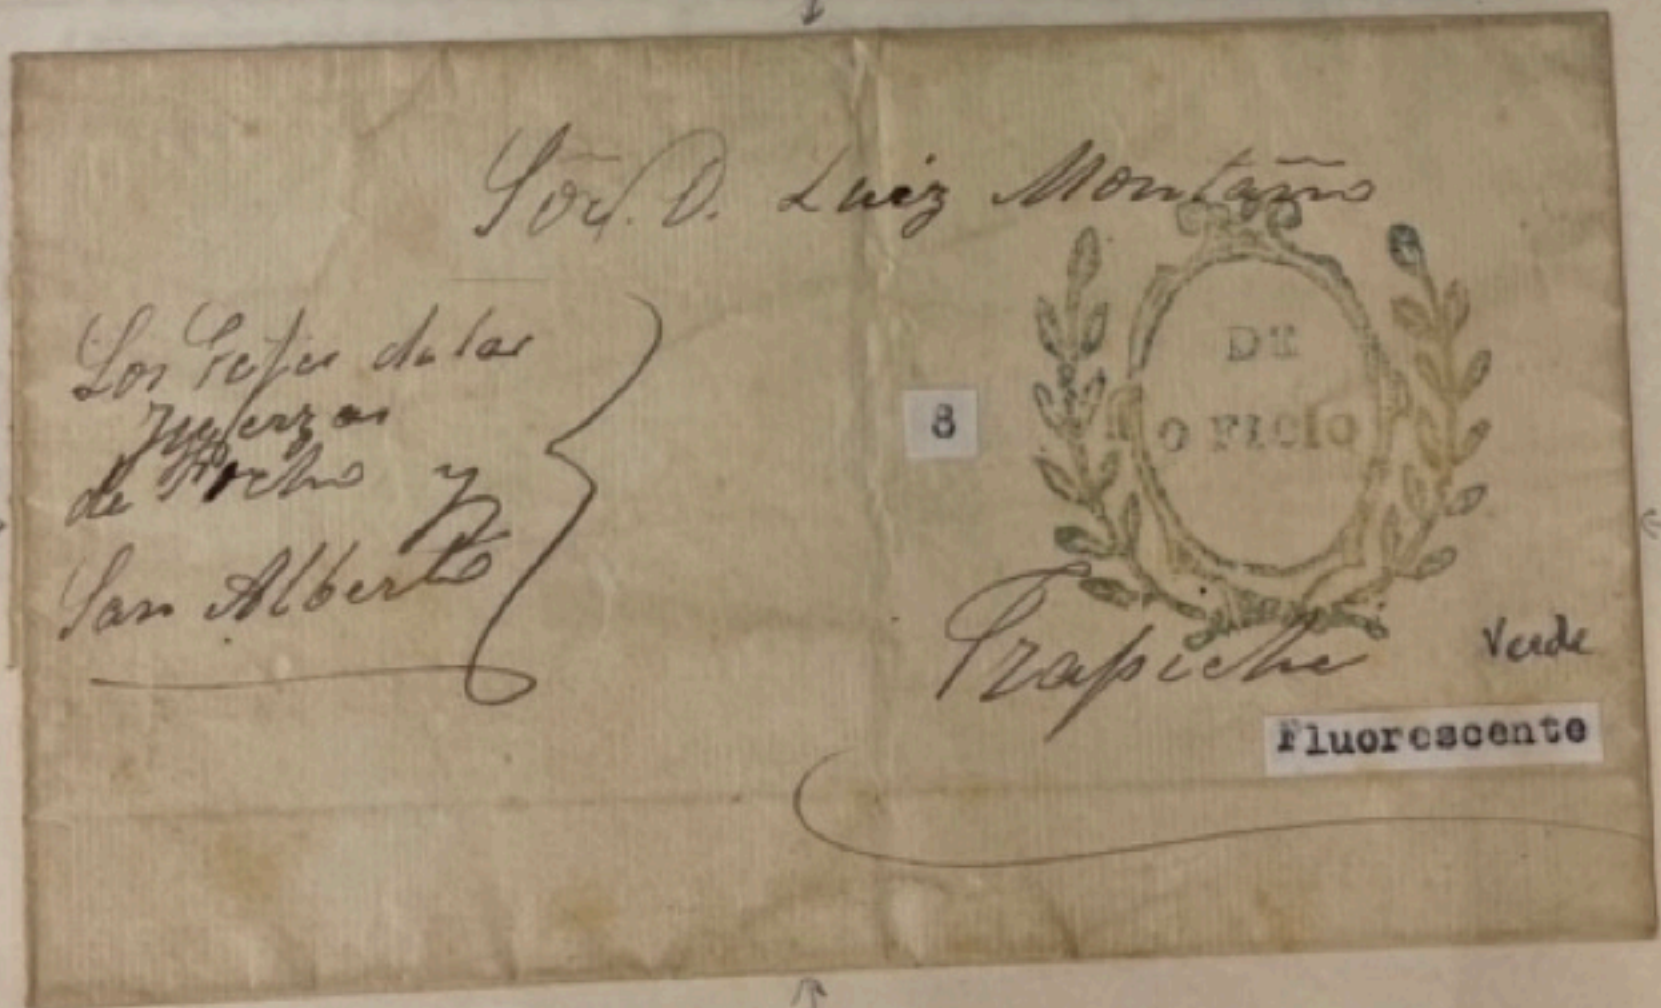 Sor. D. Luiz Montaño
Los Gefes de las
fuerzas
de Pocho y
San Alberto
8
DE
OFICIO
Trapiche
Verde
Fluorescente